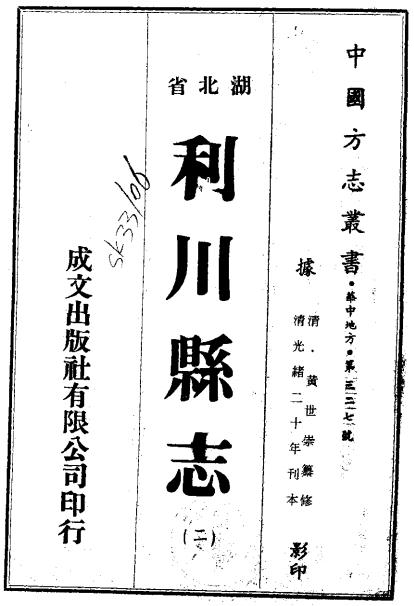 中國方志叢書·華中地方·第三二七號
據
清·黃世崇纂修
清光緒二十年刊本
影印
湖北省
利川縣志
(二)
sk33/06
成文出版社有限公司印行